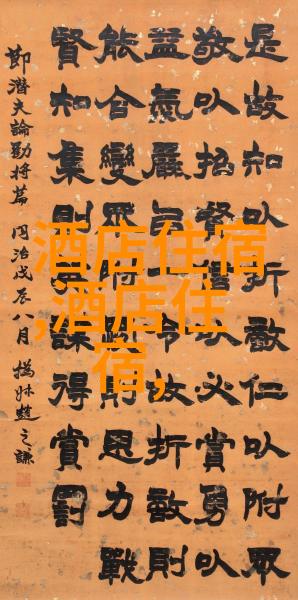 是故知以折敵仁以附眾
敬以招賢信以必賞勇以
益氣嚴以一令故折敵則
能合變眾附則思力戰
賢知集則英謀得賞罰
節潛夫論勸將篇 同治戊辰八月 撝叔趙之謙
酒店住宿
,酒店住
宿,